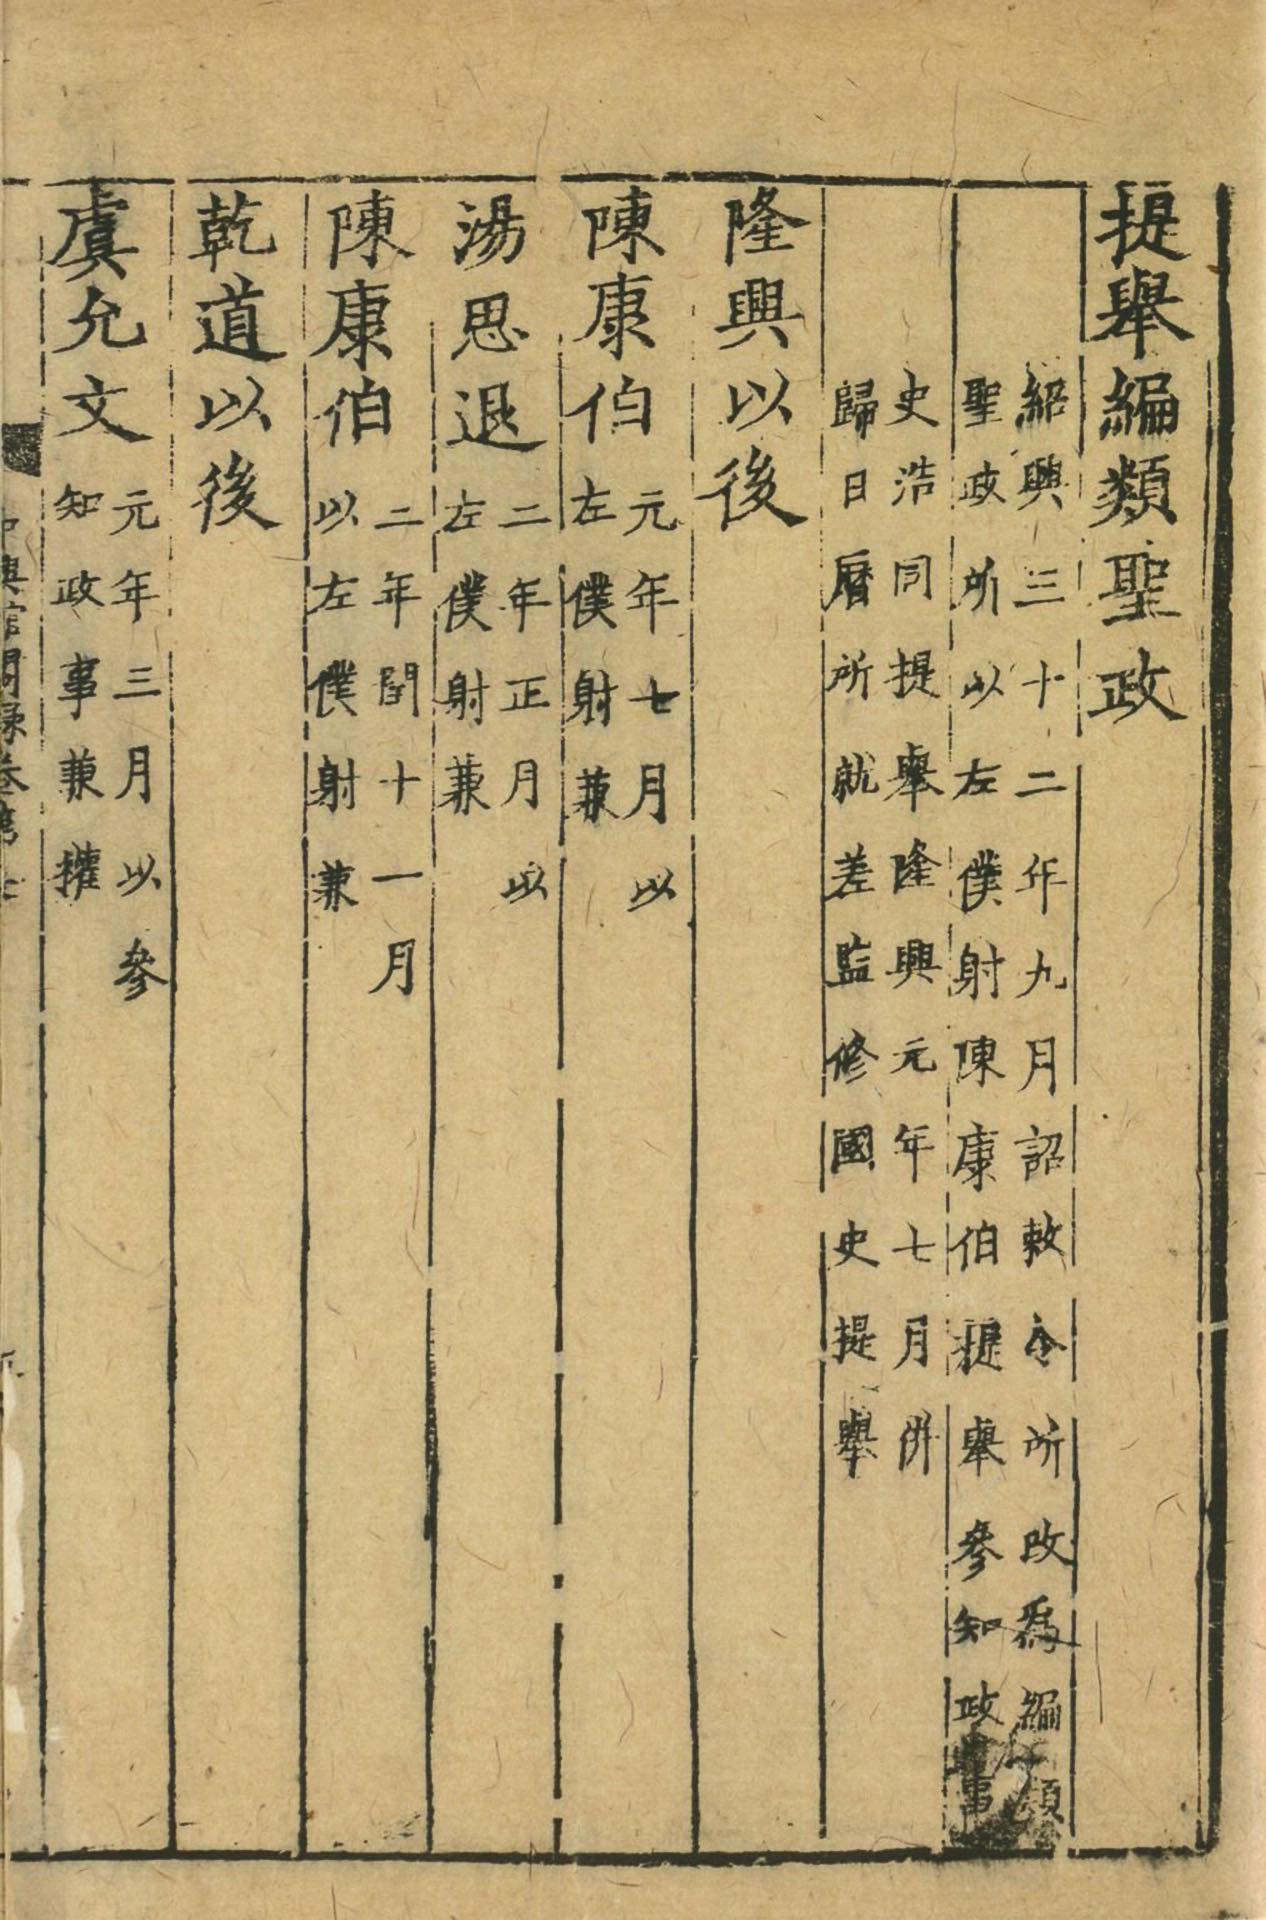 提舉編類聖政
紹興三十二年九月詔敕令所改爲編類
聖政所以左僕射陳康伯提舉參知政事
史浩同提舉隆興元年七月併
歸日曆所就差監修國史提舉
隆興以後
陳康伯元年七月以
左僕射兼
湯思退二年正月以
左僕射兼
陳康伯二年閏十一月
以左僕射兼
乾道以後
虞允文元年三月以參
知政事兼權